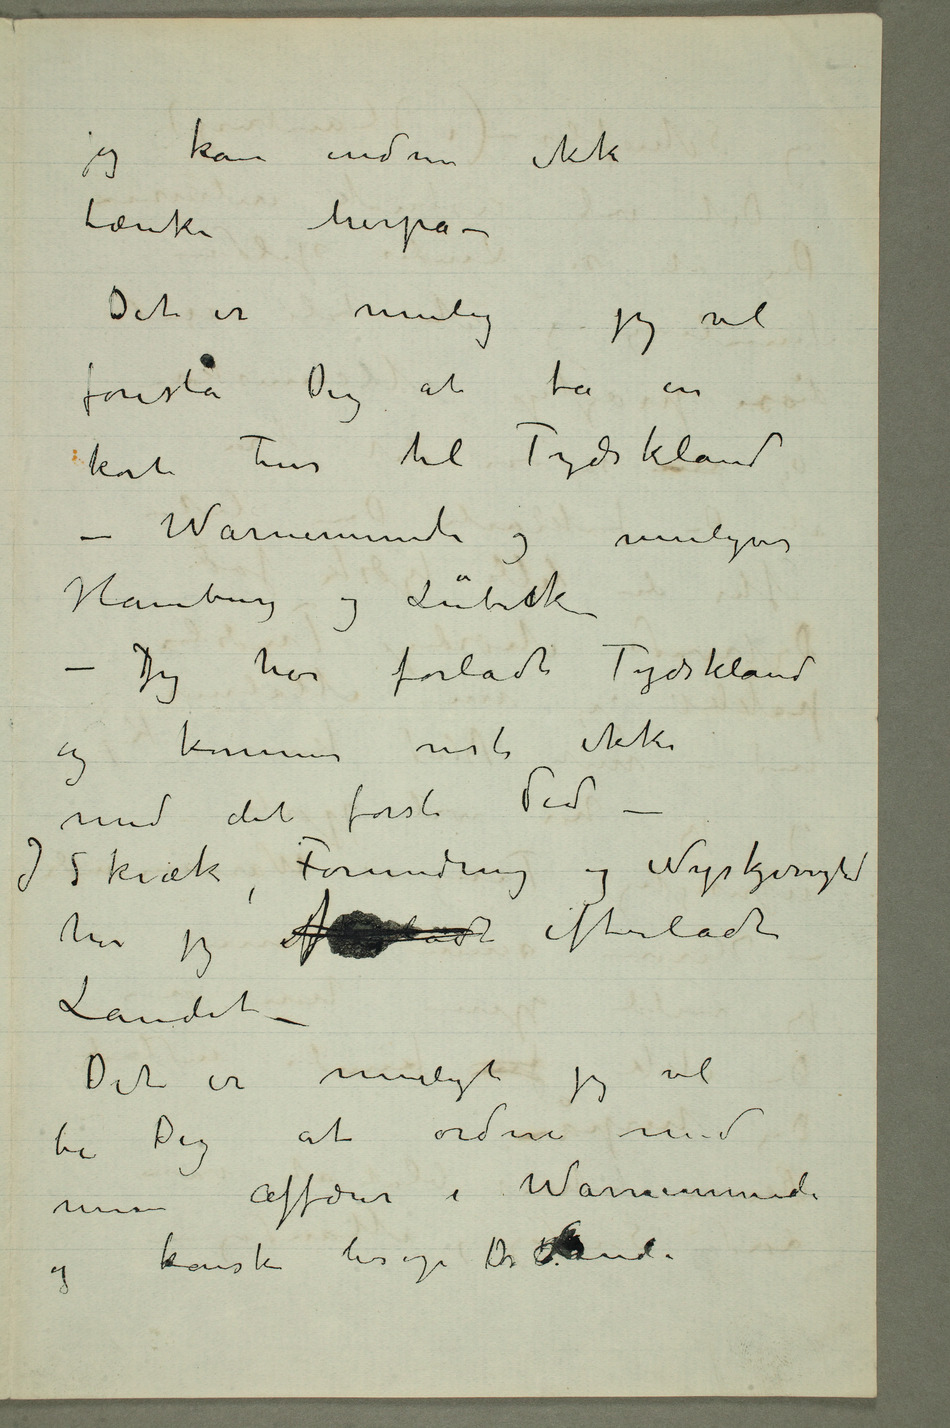 jeg kan endnu ikke
tænke herpa –
Det er mulig jeg vil
foreslå Dig at ta en
kort Tur til Tydskland
– Warnemunde og muligvis
Hamburg og Lübeck –
– Jeg har forladt Tydskland
og kommer nok ikke
med det første did –
I Skræk, Forundring og Nysgjerrighed
har jeg efterladt
Landet –
Det er muligt jeg vil
be Dig at ordne med
mine Affærer i Warnemunde
og kanske besøge Dr Linde